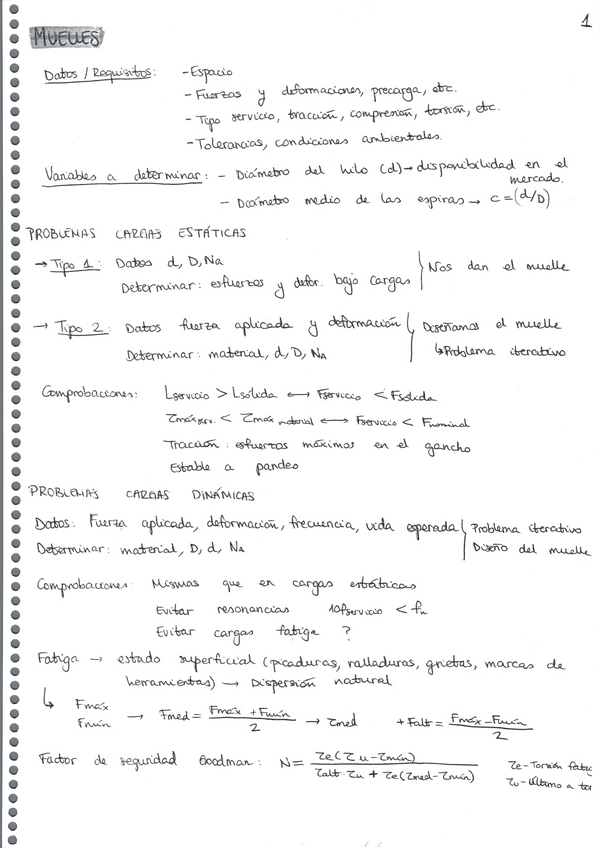 1
MUELLES
Datos / Requisitos: - Espacio
- Fuerzas y deformaciones, precarga, etc.
- Tipo servicio, tracción, compresión, torsión, etc.
- Tolerancias, condiciones ambientales.
Variables a determinar: - Diámetro del hilo (d) → disponibilidad en el
mercado.
- Diámetro medio de las espiras → c = (d/D)
PROBLEMAS CARGAS ESTÁTICAS
→ Tipo 1: Datos d, D, Na
Determinar: esfuerzos y defor. bajo cargas
Nos dan el muelle
→ Tipo 2: Datos fuerza aplicada y deformación
Determinar: material, d, D, NA
Diseñamos el muelle
↳ Problema iterativo
Comprobaciones: Lservicio > Lsólida ⟷ Fservicio < Fsólida
τmáx serv. < τmáx material ⟷ Fservicio < Fnominal
Tracción: esfuerzos máximos en el gancho
Estable a pandeo
PROBLEMAS CARGAS DINÁMICAS
Datos: Fuerza aplicada, deformación, frecuencia, vida esperada
Determinar: material, D, d, NA
Problema iterativo
Diseño del muelle
Comprobaciones: Mismas que en cargas estáticas
Evitar resonancias 10fservicio < fn
Evitar cargas fatiga ?
Fatiga → estado superficial (picaduras, ralladuras, grietas, marcas de
herramientas) → Dispersión natural
↳ Fmáx
Fmín → Fmed = (Fmáx + Fmín)/2 → τmed + Falt = (Fmáx - Fmín)/2
Factor de seguridad Goodman: N = τe(τu - τmín) / (τalt · τu + τe(τmed - τmín))
τe - Torsión fatig
τu - Último a tor